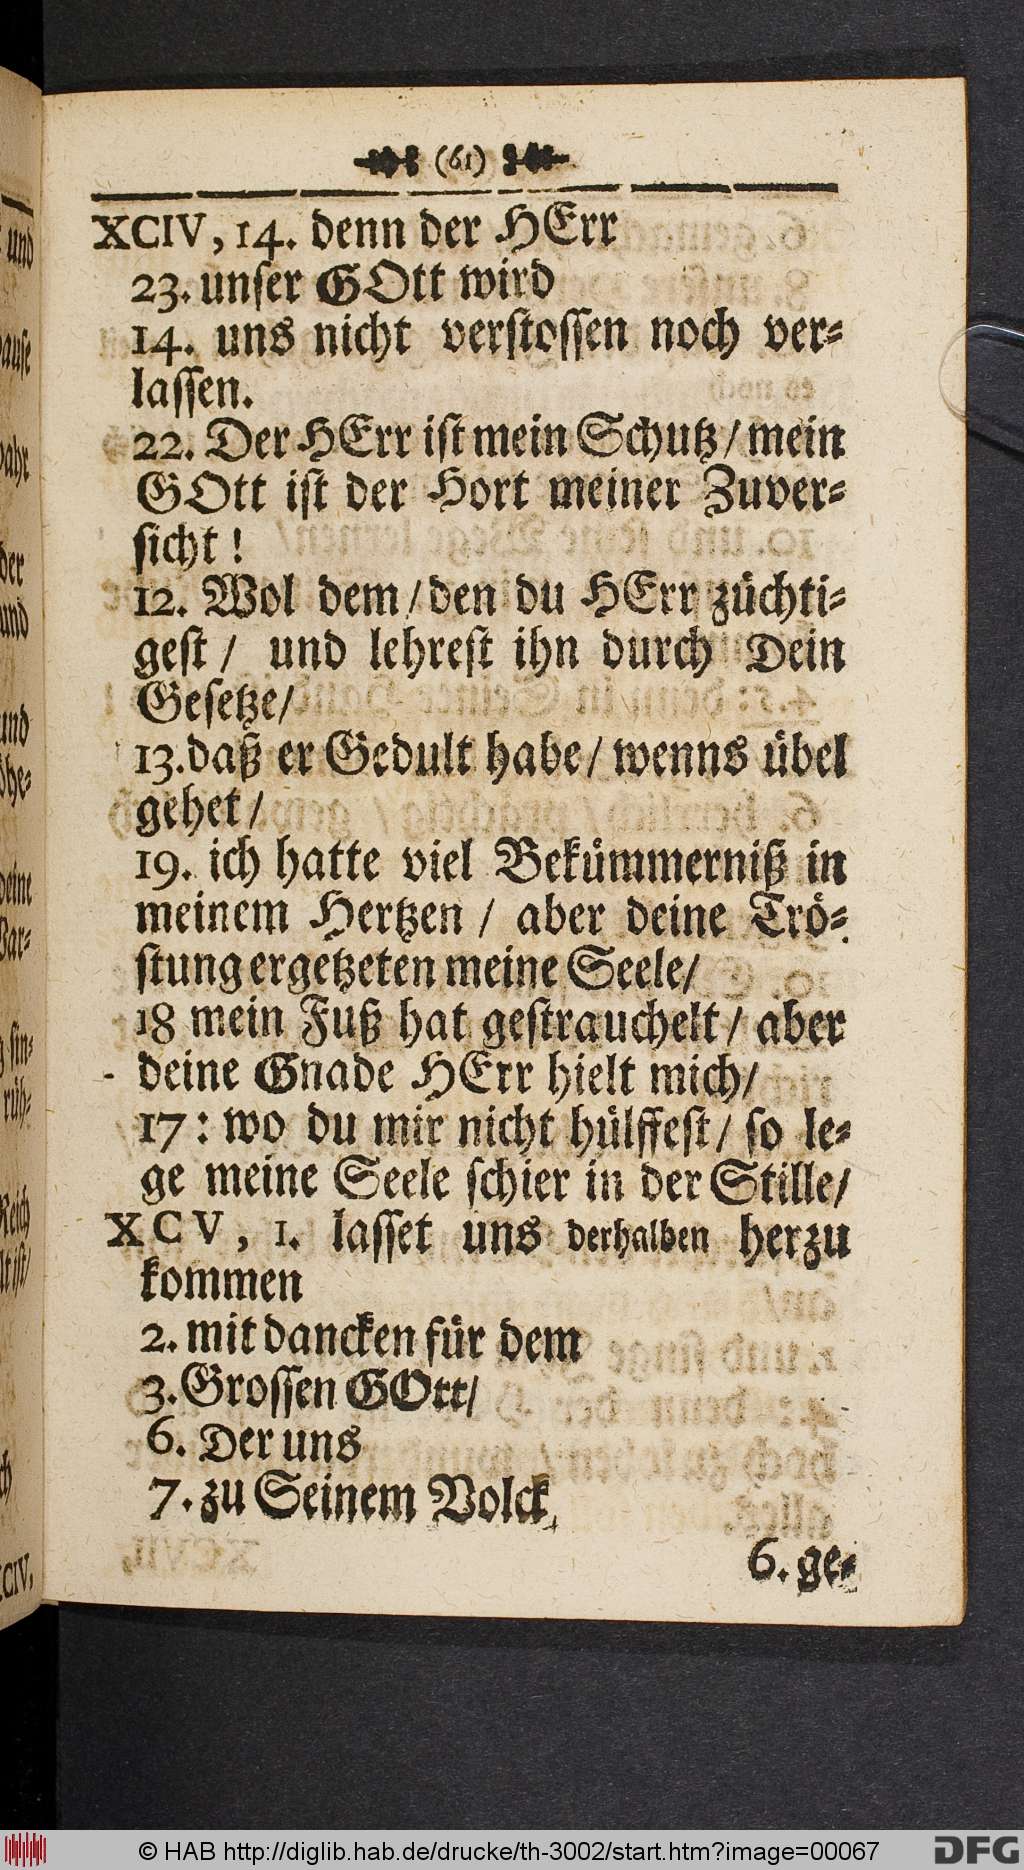 (61)
XCIV, 14. denn der HErr
23. unſer GOtt wird
14. uns nicht verſtoſſen noch ver⸗
laſſen.
22. Der HErr iſt mein Schutz / mein
GOtt iſt der Hort meiner Zuver⸗
ſicht !
12. Wol dem / den du HErr züchti⸗
geſt / und lehreſt ihn durch Dein
Geſetze /
13. daß er Gedult habe / wenns übel
gehet /
19. ich hatte viel Bekümmerniß in
meinem Hertzen / aber deine Trö⸗
ſtung ergetzeten meine Seele /
18 mein Fuß hat geſtrauchelt / aber
deine Gnade HErr hielt mich /
17 : wo du mir nicht hülffeſt / ſo le⸗
ge meine Seele ſchier in der Stille /
XCV, 1. laſſet uns derhalben herzu
kommen
2. mit dancken für dem
3. Groſſen GOtt /
6. Der uns
7. zu Seinem Volck
6. ge⸗
und
auſe
ahr
der
und
und
öhe⸗
deine
ſin⸗
rüh⸗
Reich
iſt /
CIV,
© HAB http://diglib.hab.de/drucke/th-3002/start.htm?image=00067
DFG